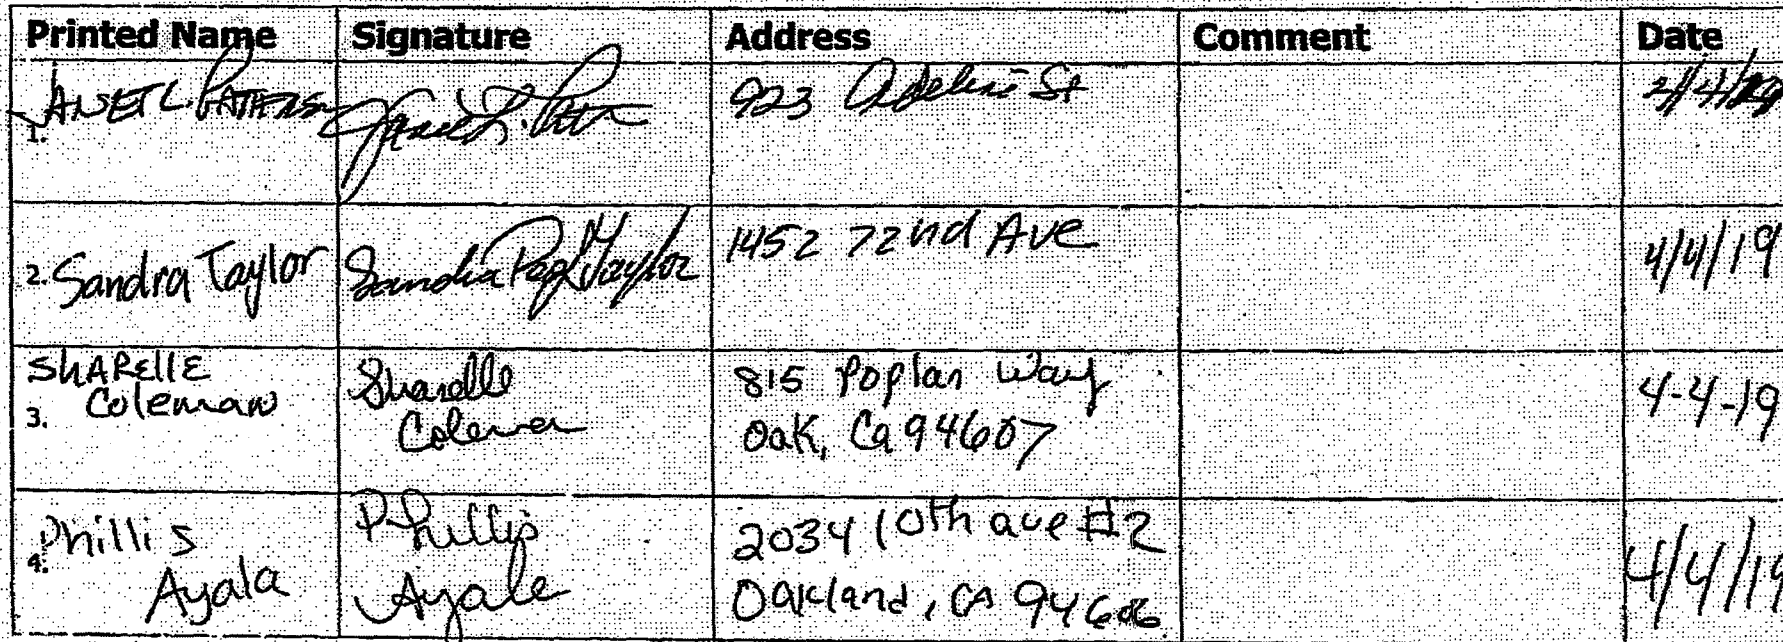 Printed Name Signature Address Comment Date
1. JANET L. PATTERSON Janet L. 923 Adeline St 4/4/
2. Sandra Taylor Sandra Taylor 1452 72nd Ave 4/4/19
3. SHARELLE Coleman Sharelle Coleman 815 Poplar Way 4-4-19
Oak, Ca 94607
4. Phillis Ayala Phillis Ayala 2034 10th ave #2 4/4/19
Oakland, CA 94606